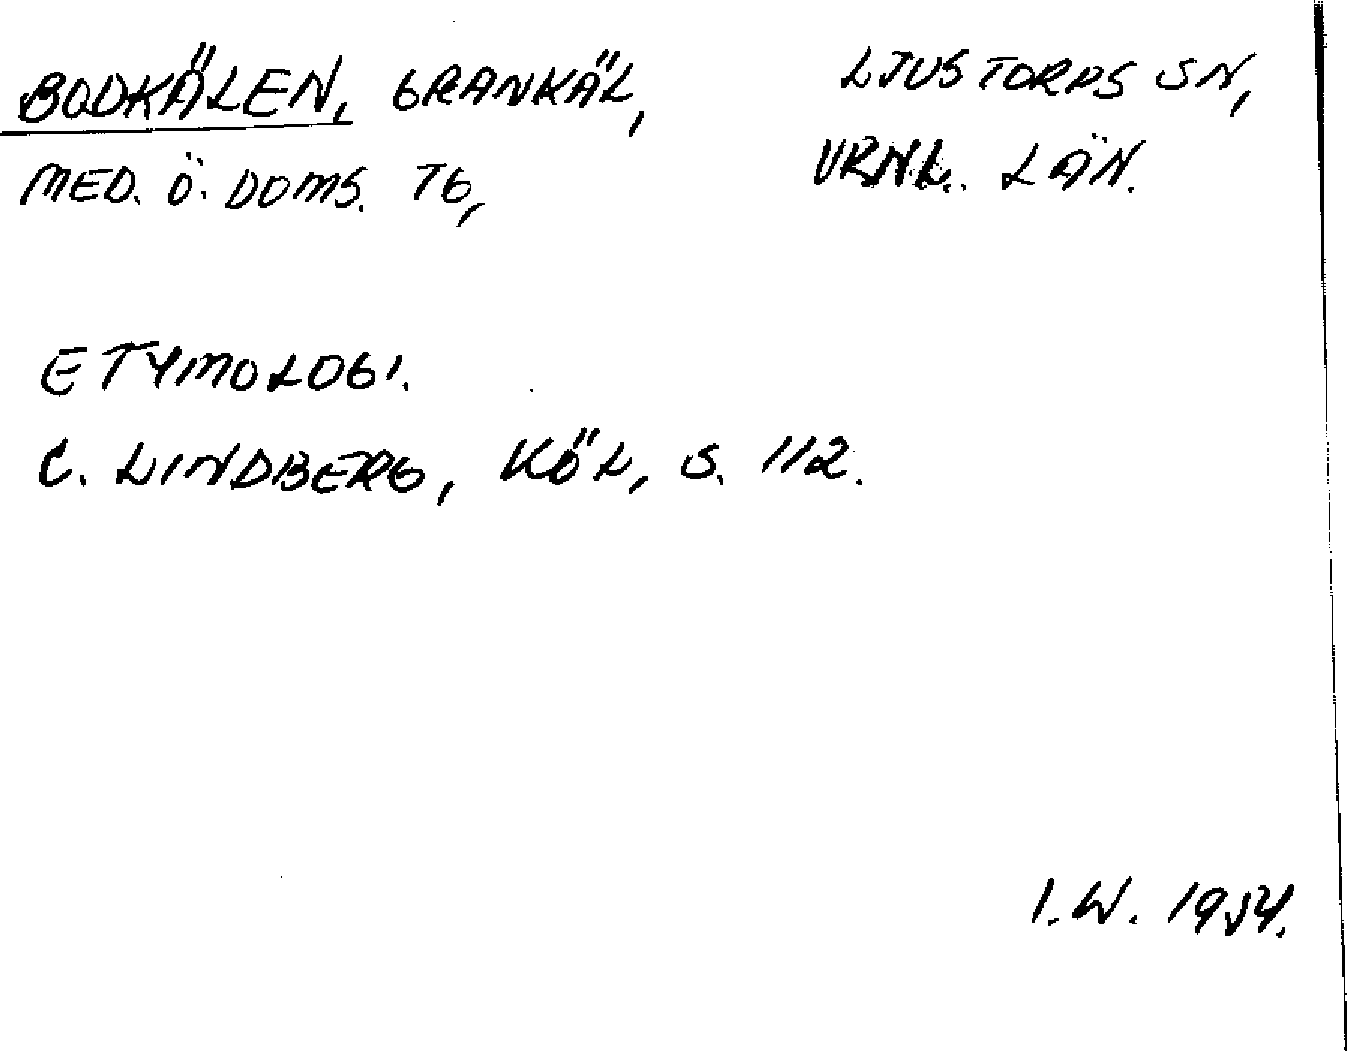 BODKÄLEN, GRANKÄL,
MED. Ö. DOMS. TG,
LJUSTORPS SN,
VRNL. LÄN.
ETYMOLOGI.
C. LINDBERG, KÖL, S. 112.
I.W. 1954.